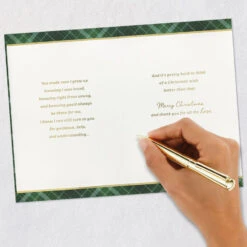 You made sure I grew up
knowing I was loved,
knowing right from wrong,
and knowing you'd always
be there for me.
I know I can still turn to you
for guidance, help,
and understanding...
And it's pretty hard to think
of a Christmas wish
better than that.
Merry Christmas,
and thank you for all the love.